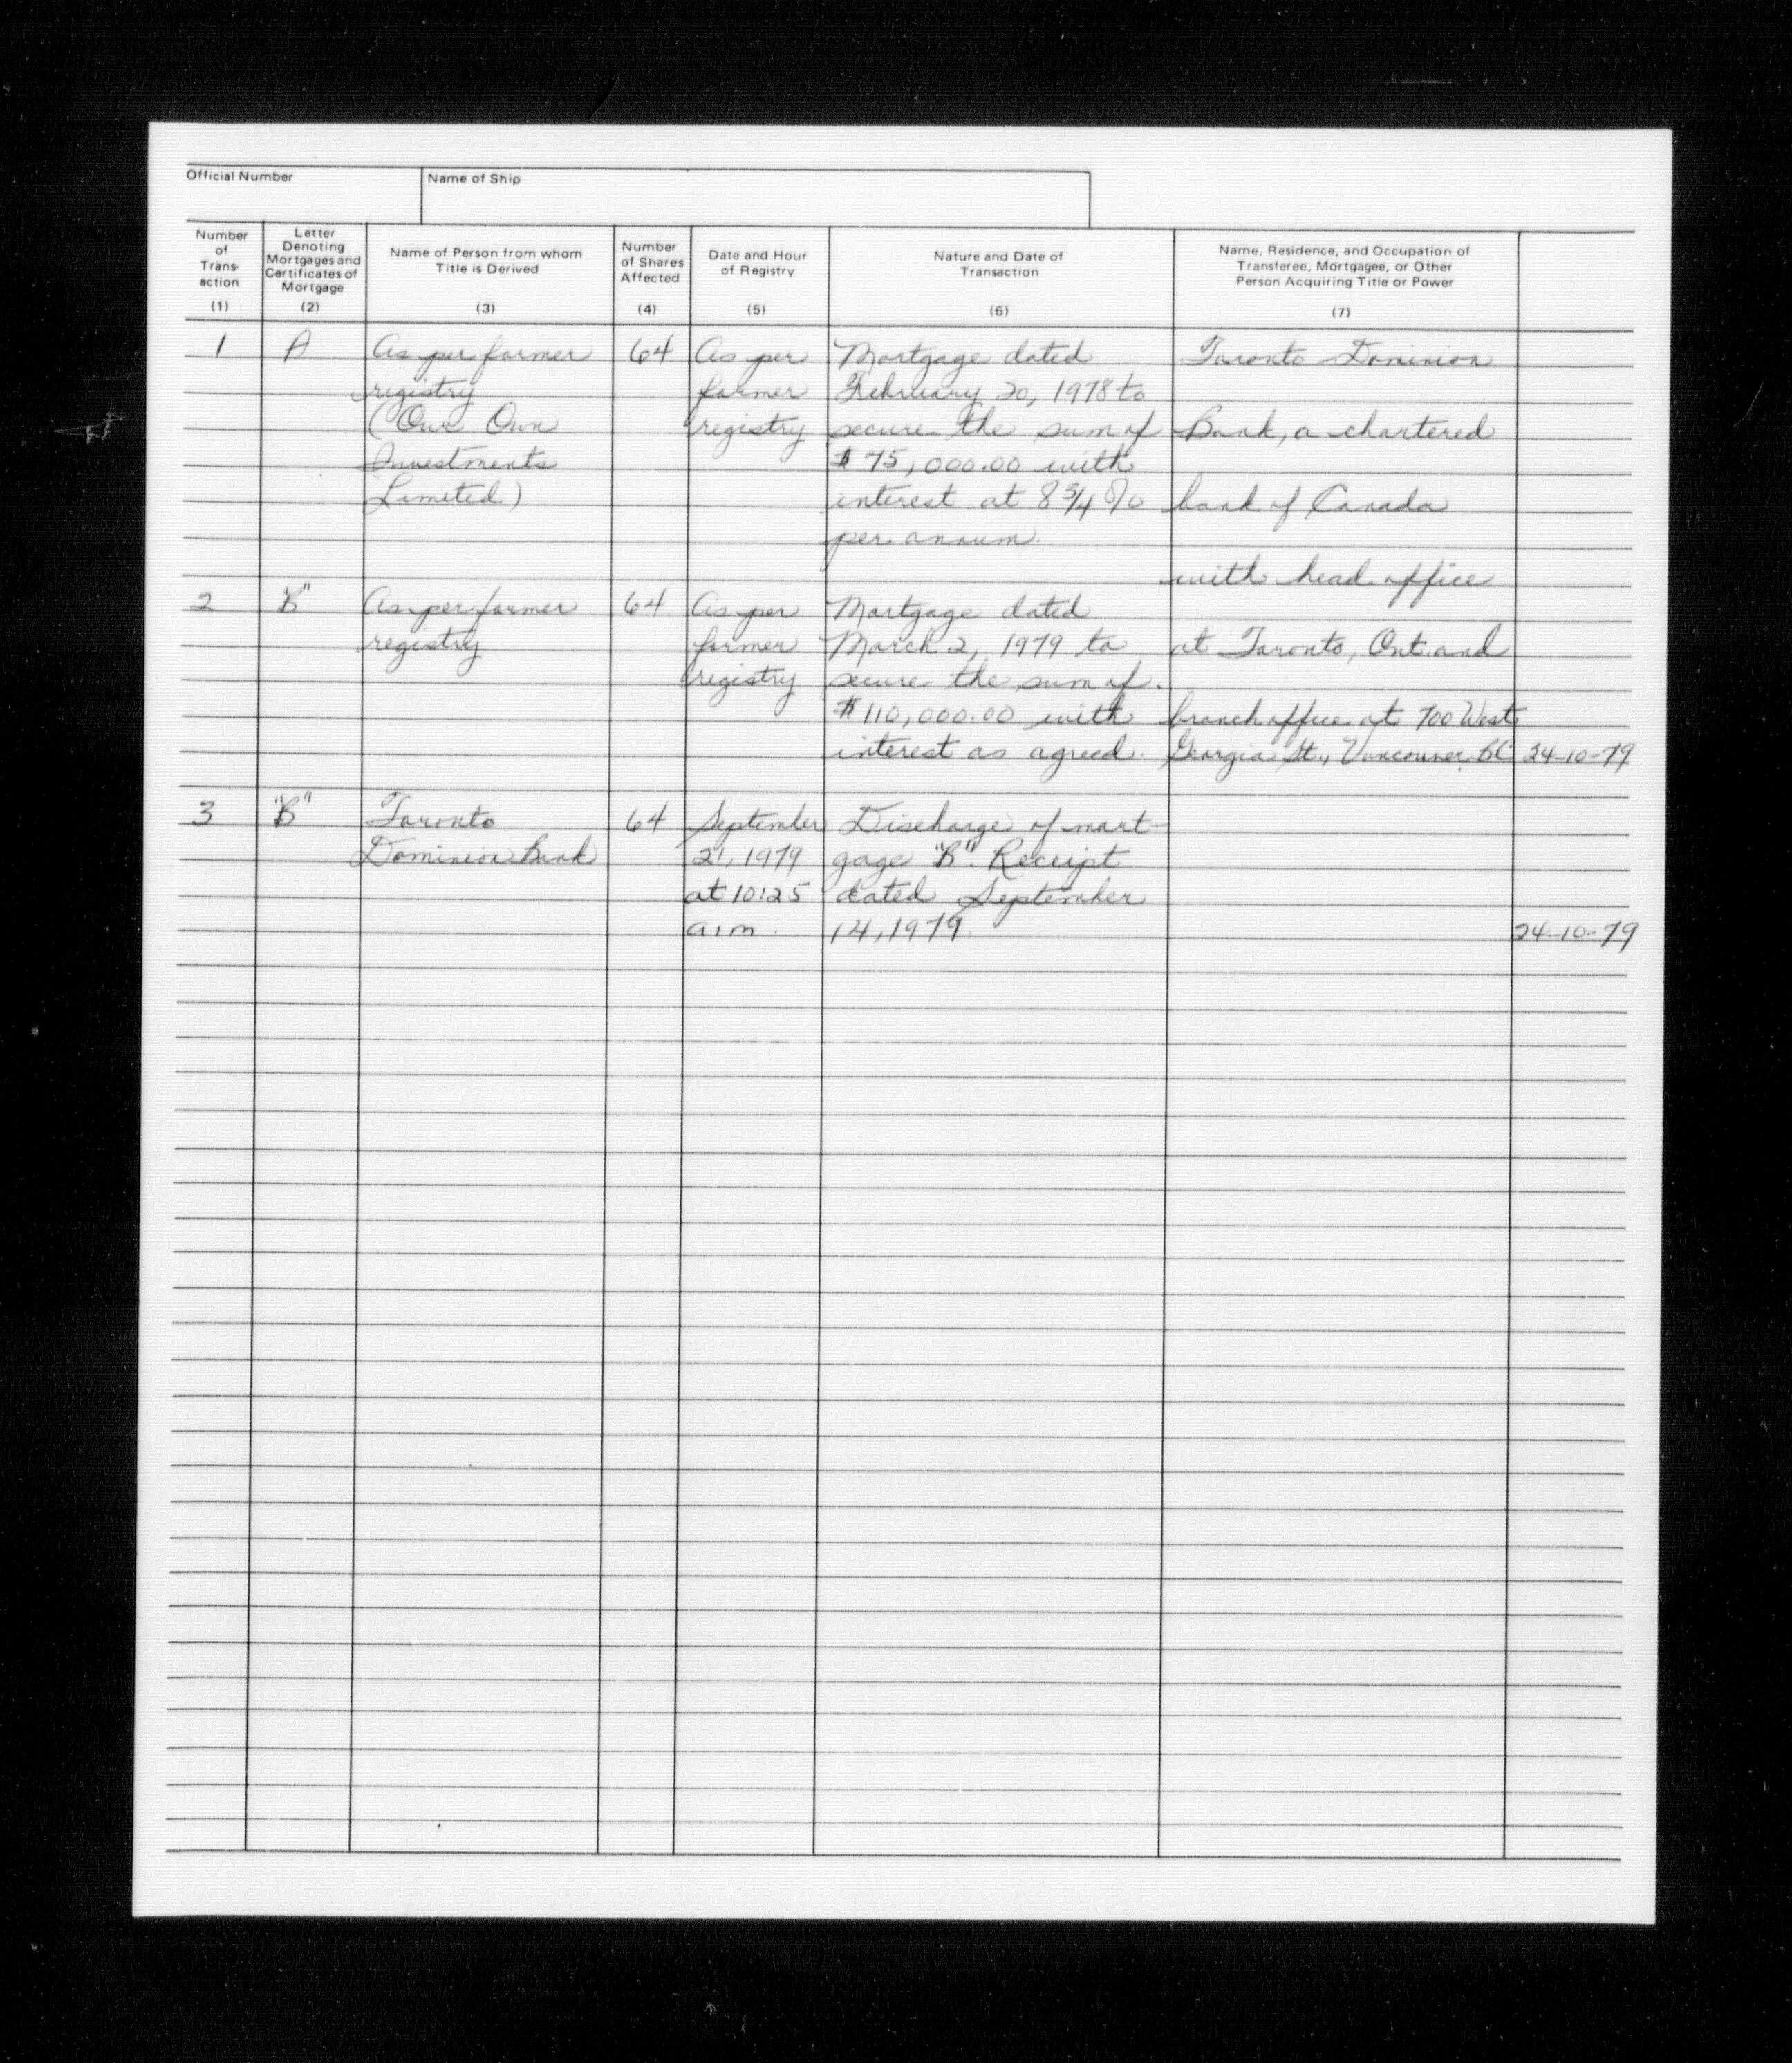 Official Number
Name of Ship
Number of Trans- action (1)
Letter Denoting Mortgages and Certificates of Mortgage (2)
Name of Person from whom Title is Derived (3)
Number of Shares Affected (4)
Date and Hour of Registry (5)
Nature and Date of Transaction (6)
Name, Residence, and Occupation of Transferee, Mortgagee, or Other Person Acquiring Title or Power (7)
1 A As per former 64 As per Mortgage dated Toronto Dominion
registry former February 20, 1978 to
(Our Own registry secure the sum of Bank, a chartered
Investments $75,000.00 with
Limited) interest at 8 3/4 % bank of Canada
per annum.
with head office
2 "B" As per former 64 As per Mortgage dated
registry former March 2, 1979 to at Toronto, Ont. and
registry secure the sum of
$110,000.00 with branch office at 700 West
interest as agreed. Georgia St., Vancouver, BC 24-10-79
3 "B" Toronto 64 September Discharge of mort-
Dominion Bank 21, 1979 gage "B". Receipt
at 10:25 dated September
a.m. 14, 1979. 24-10-79